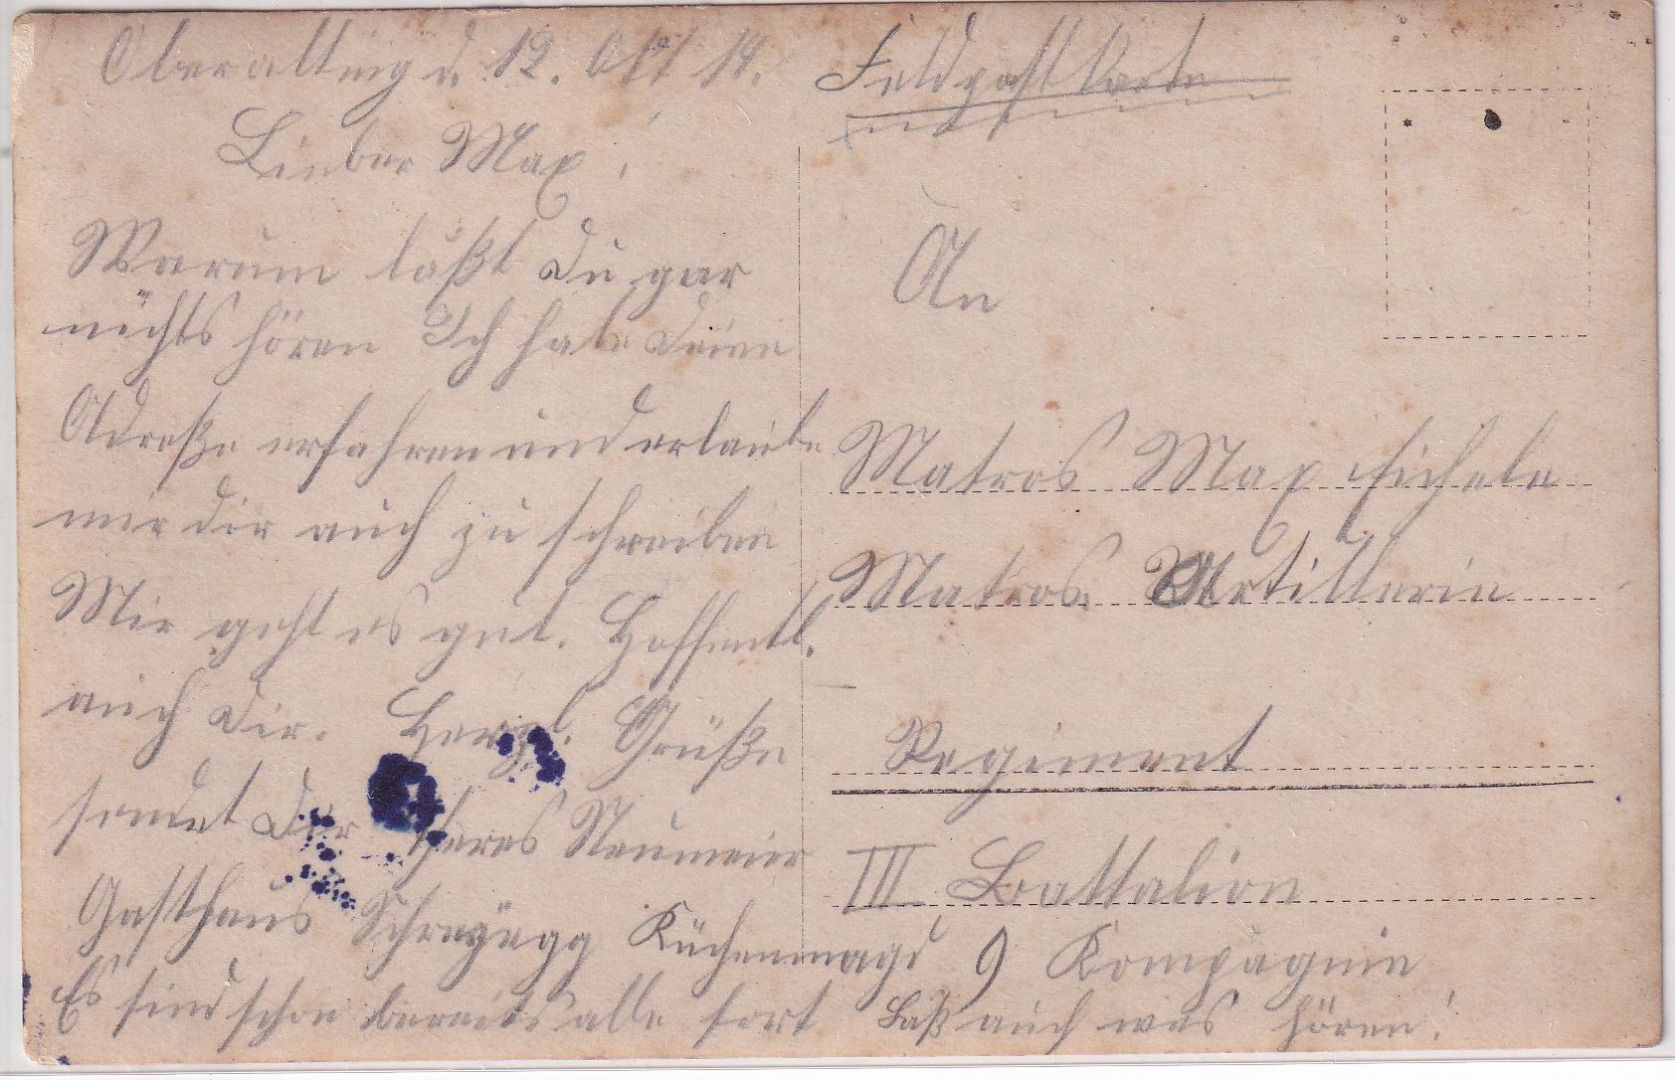 Oberalting d. 12. Okt 14.
Lieber Max!
Warum läßt Du gar
nichts hören Ich habe Deine
Adreße erfahren und erlaube
mir dir auch zu schreiben
Mir geht es gut. Hoffentl.
auch Dir. Herzl. Grüße
sendet Dir Theres Neumeier
Gasthaus Schreyegg Küchenmagd
Es sind schon bereits alle fort Laß auch was hören!
Feldpostkarte
An
Matros Max Eichele
Matros. Artillerie
Regiment
III Battalion
9 Kompagnie